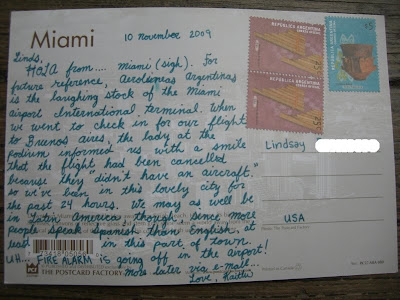 Miami
10 November 2009
Linds,
HOLA from.... Miami (sigh). For
future reference, Aerolineas Argentinas
is the laughing stock of the Miami
airport International terminal. When
we went to check in for our flight
to Buenos Aires, the lady at the
podium informed us with a smile
that the flight had been cancelled
because they "didn't have an aircraft."
so we've been in this lovely city for
the past 24 hours. We may as well be
in Latin America, though, since more
people speak Spanish than English, at
least in this part of town.
UH... FIRE ALARM is going off in the airport!
More later via e-mail.
Love, Kaitlin
REPUBLICA ARGENTINA
REPUBLICA ARGENTINA
REPUBLICA ARGENTINA
$5
Lindsay
USA
THE POSTCARD FACTORY